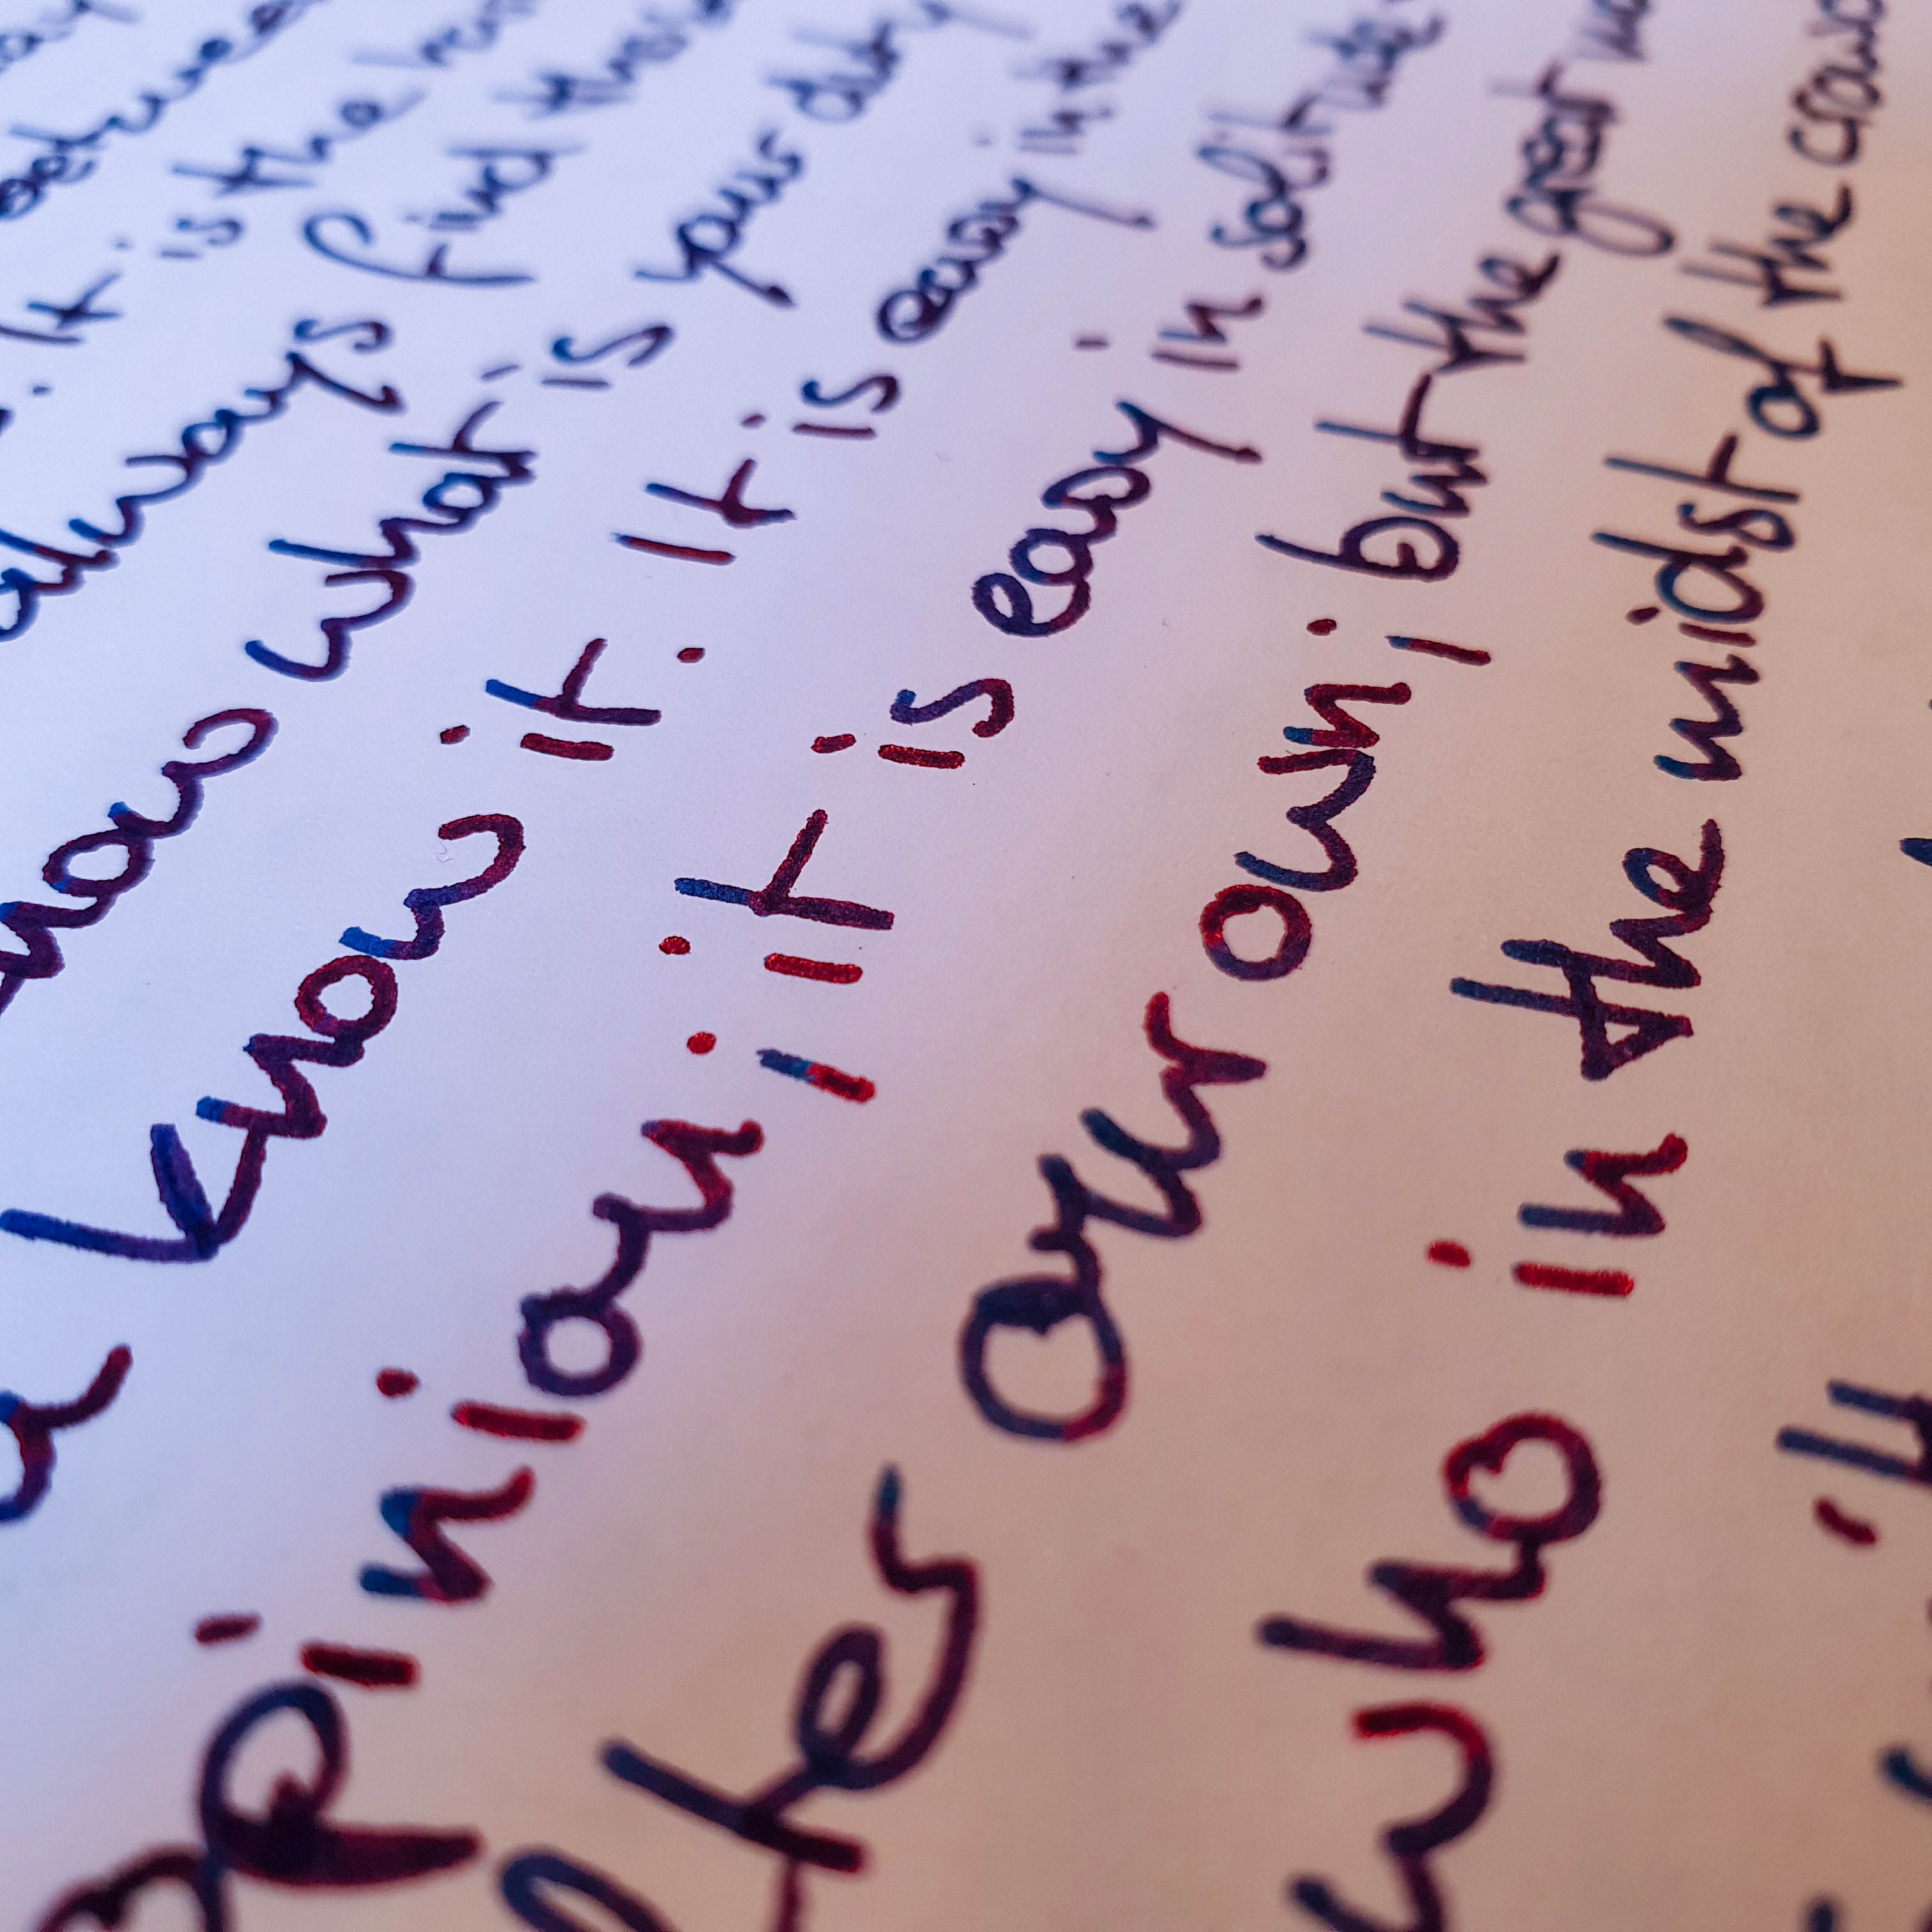 it is the
always find
know what is your duty
know it. It is easy in the
opinion; it is easy in solitude
after our own; but the great
who in the midst of the crowd